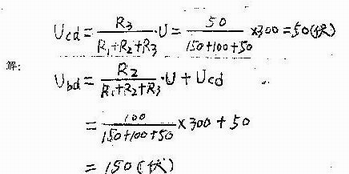 U_cd = R₃/(R₁+R₂+R₃)·U = 50/(150+100+50) ×300 = 50(伏)
解:
U_bd = R₂/(R₁+R₂+R₃)·U + U_cd
= 100/(150+100+50) × 300 + 50
= 150(伏)